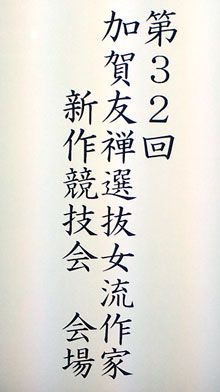 第３２回
加賀友禅選抜女流作家
新作競技会　会場